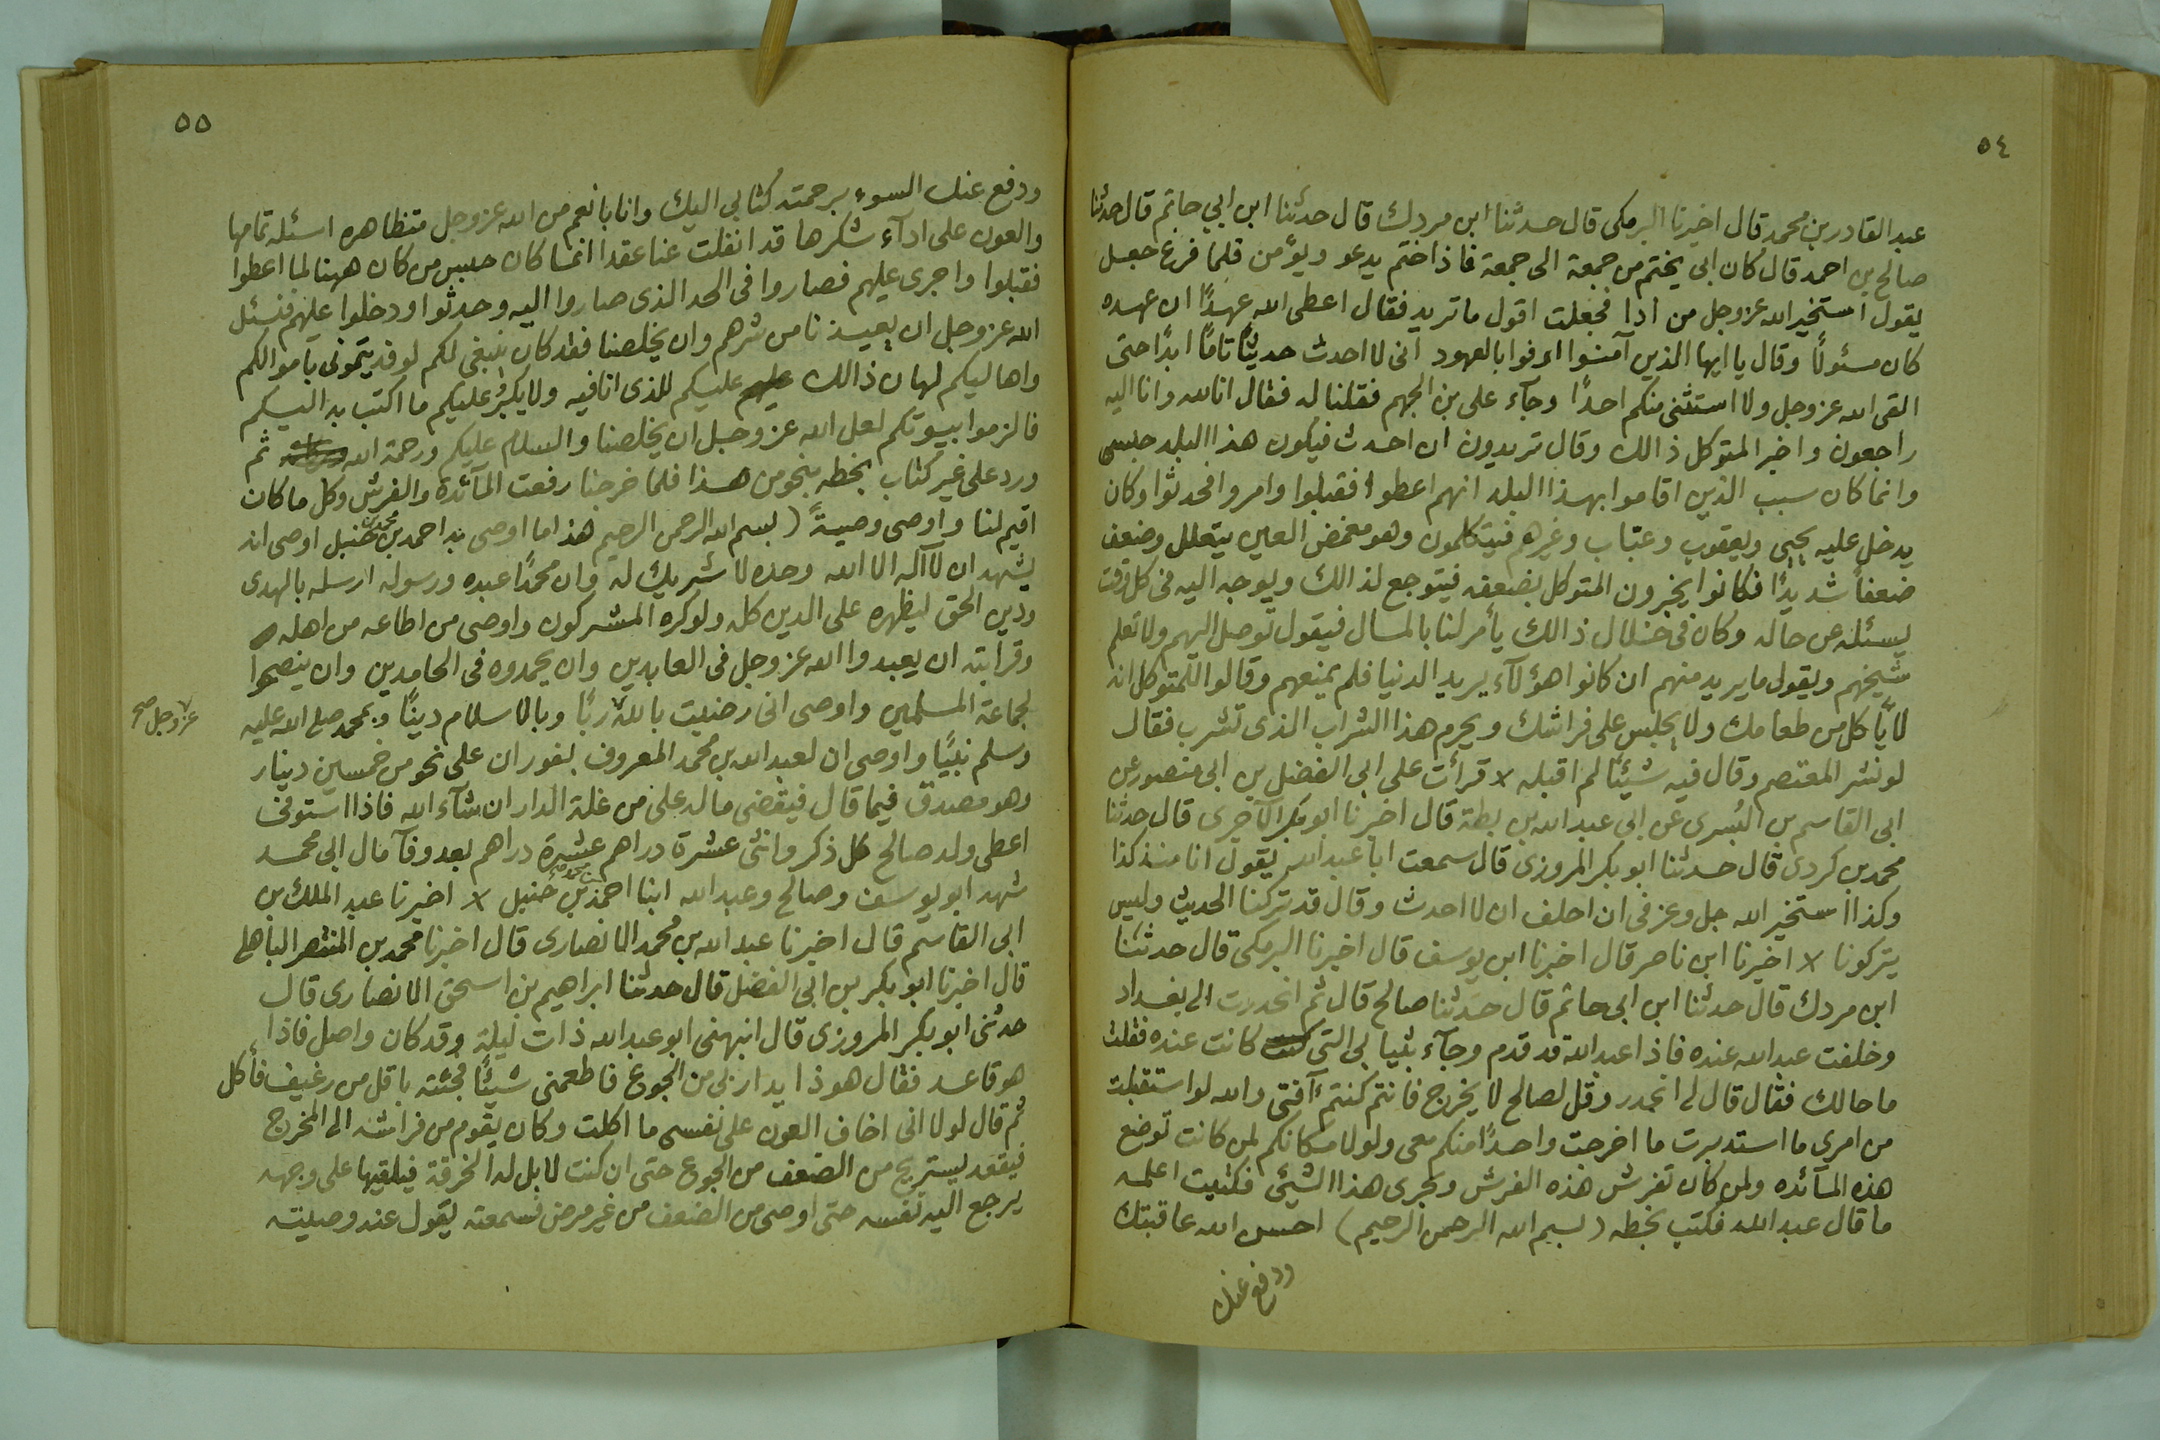 ٥٤
عبد القادر بن محمد قال اخبرنا البرمكى قال حدثنا ابن مردك قال حدثنا ابن ابي حاتم قال حدثنا
صالح بن احمد قال كان ابى يختم من جمعة الى جمعة فاذا ختم يدعو ويؤمن فلما فرغ جعل
يقول استخير الله عزوجل من ادا فجعلت اقول ما تريد فقال اعطى الله عهدًا ان عهده
كان مسئولًا وقال يا ايها الذين آمنوا اوفوا بالعهود انى لا احدث حديثًا تامًا ابدًا حتى
القى الله عزوجل ولا استثنى منكم احدًا وجآء على بن الجهم فقلنا له فقال انا لله وانا اليه
راجعون واخبر المتوكل ذالك وقال تريدون ان احدث فيكون هذا البلد حبسى
وانما كان سبب الذين اقاموا بهذا البلد انهم اعطوا فقبلوا وامروا فحدثوا وكان
يدخل عليه يحيى ويعقوب وعتاب وغيرهم فيتكلمون وهو مغمض العين يتعلل وضعف
ضعفًا شديدًا فكانوا يخبرون المتوكل بضعفه فيتوجع لذالك ويوجه اليه فى كل وقت
يسئله عن حاله وكان فى خلال ذالك يأمر لنا بالمال فيقول توصل اليهم ولا تعلم
شيخهم ويقول ما يريد منهم ان كانوا هؤلآء يريد الدنيا فلم يمنعهم وقالوا للمتوكل انه
لا يأكل من طعامك ولا يجلس على فراشك ويحرم هذا الشراب الذى تشرب فقال
لو نشر المعتصم وقال فيه شيئًا لم اقبله ٪ قرأت على ابى الفضل بن ابى منصور عن
ابى القاسم بن البُسرى عن ابى عبد الله بن بطة قال اخبرنا ابو بكر الآجرى قال حدثنا
محمد بن كردى قال حدثنا ابو بكر المروزى قال سمعت ابا عبد الله يقول انا منذ كذا
وكذا استخير الله جل وعز فى ان احلف ان لا احدث وقال قد تركنا الحديث وليس
يتركونا ٪ اخبرنا ابن ناصر قال اخبرنا ابن يوسف قال اخبرنا البرمكى قال حدثنا
ابن مردك قال حدثنا ابن ابى حاتم قال حدثنا صالح قال ثم انحدرت الى بغداد
وخلفت عبد الله عنده فاذا عبد الله قد قدم وجآء بثيا بى التى كانت عنده فقلت
ما حالك فقال قال لى انحدر وقل لصالح لا يخرج فانتم كنتم آفتى والله لو استقبلت
من امرى ما استدبرت ما اخرجت واحدًا منكم معى ولولا مكانكم لمن كانت توضع
هذه المآئده ولمن كان تفرش هذه الفرش وبجرى هذا الشيئ فكتبت اعلمه
ما قال عبد الله فكتب بخطه (بسم الله الرحمن الرحيم) احسن الله عاقبتك
ودفع عنك
٥٥
ودفع عنك السوء برحمته كتابى اليك وانا بانعم من الله عزوجل متظاهره اسئله تمامها
والعون على ادآء شكرها قد انفلت عنا عقدا انما كان حبس من كان ههنا لما اعطوا
فقبلوا واجرى عليهم فصاروا فى الحد الذى صاروا اليه وحدثوا ودخلوا عليهم فنسئل
الله عزوجل ان يعيذنا من شرهم وان يخلصنا فقد كان ينبغى لكم لو فديتمونى باموالكم
واهاليكم لهان ذالك عليهم عليكم للذى انا فيه ولا يكبر عليكم ما اكتب به اليكم
فالزموا بيوتكم لعل الله عزوجل ان يخلصنا والسلام عليكم ورحمة الله وبركاته ثم
ورد على غير كتاب بخطه بنحو من هذا فلما خرجنا رفعت المآئدة والفرش وكل ما كان
اقيم لنا واوصى وصيةً (بسم الله الرحمن الرحيم هذا ما اوصى به احمد بن محمد بن حنبل اوصى انه
يشهد ان لآاله الا الله وحده لا شريك له وان محمدًا عبده ورسوله ارسله بالهدى
ودين الحق ليظهره على الدين كله ولو كره المشركون واوصى من اطاعه من اهله
وقرابته ان يعبدوا الله عزوجل فى العابدين وان يحمدوه فى الحامدين وان ينصحوا
لجماعة المسلمين واوصى انى رضيت بالله ربًا وبالاسلام دينًا وبمحمد صلى الله عليه
عزوجل صح
وسلم نبيًا واوصى ان لعبد الله بن محمد المعروف بفوران على نحو من خمسين دينار
وهو مصدق فيما قال فيقضى ماله على من غلة الدار ان شآء الله فاذا استوفى
اعطى ولد صالح كل ذكر وانثى عشرة دراهم عشرة دراهم بعد وفآ مال ابى محمد
شهد ابو يوسف وصالح وعبد الله ابنا احمد بن محمد بن حنبل ٪ اخبرنا عبد الملك بن
ابى القاسم قال اخبرنا عبد الله بن محمد الانصارى قال اخبرنا محمد بن المنتصر الباهلى
قال اخبرنا ابو بكر بن ابى الفضل قال حدثنا ابراهيم بن اسحق الانصارى قال
حدثنى ابو بكر المروزى قال انبهنى ابو عبد الله ذات ليلة وقد كان واصل فاذا
هو قاعد فقال هو ذا يدار بى من الجوع فاطعمنى شيئًا فجئته باقل من رغيف فأكل
ثم قال لولا انى اخاف العون على نفسى ما اكلت وكان يقوم من فراشه الى المخرج
فيقعد يستريح من الضعف من الجوع حتى ان كنت لابل له الخرقة فيلقيها على وجهه
يرجع اليه نفسه حتى اوصى من الضعف من غير مرض فسمعته يقول عند وصيته